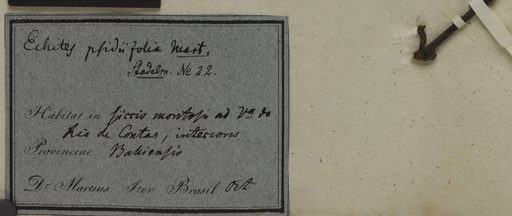 Echites psidiifolia Mart.
Stadelm. No 22.
Habitat in siccis montosis ad Va do
Rio de Contas, interioris
Provinciae Bahiensis
Dr. Martius Iter Brasil.